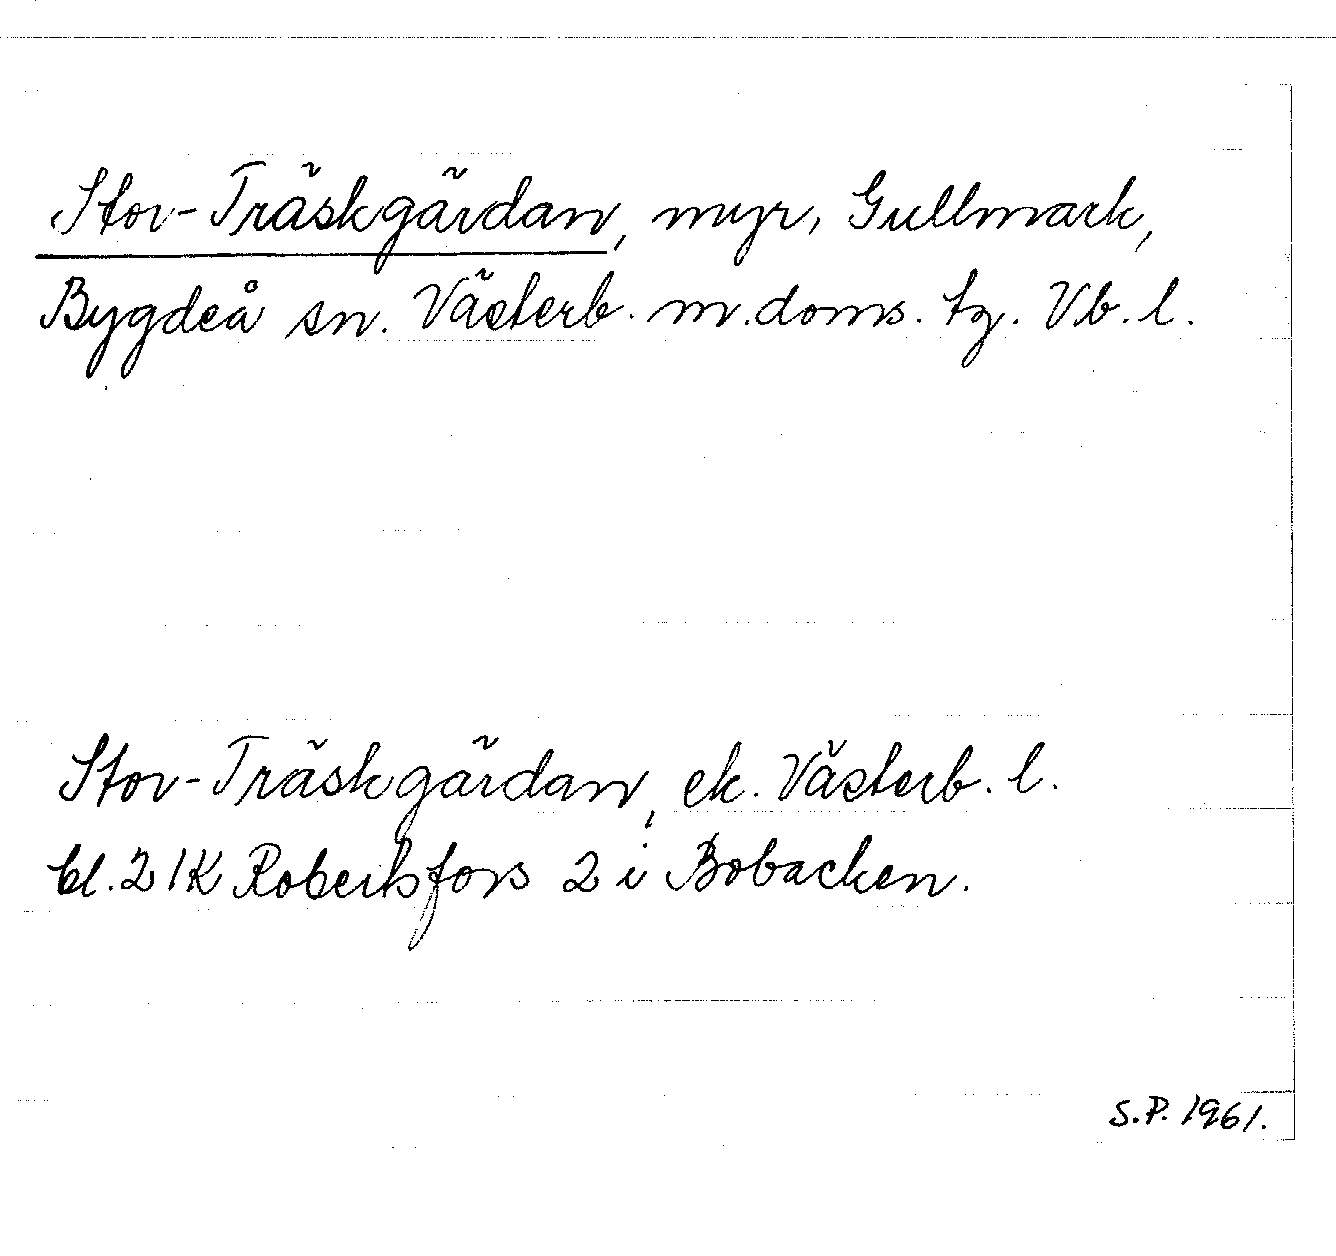 Stor-Träskgärdan, myr, Gullmark,
Bygdeå sn. Västerb. m. doms. tg. Vb. l.
Stor-Träskgärdan, ek. Västerb. l.
bl. 21K Robertsfors 2 i Bobacken.
S.P. 1961.